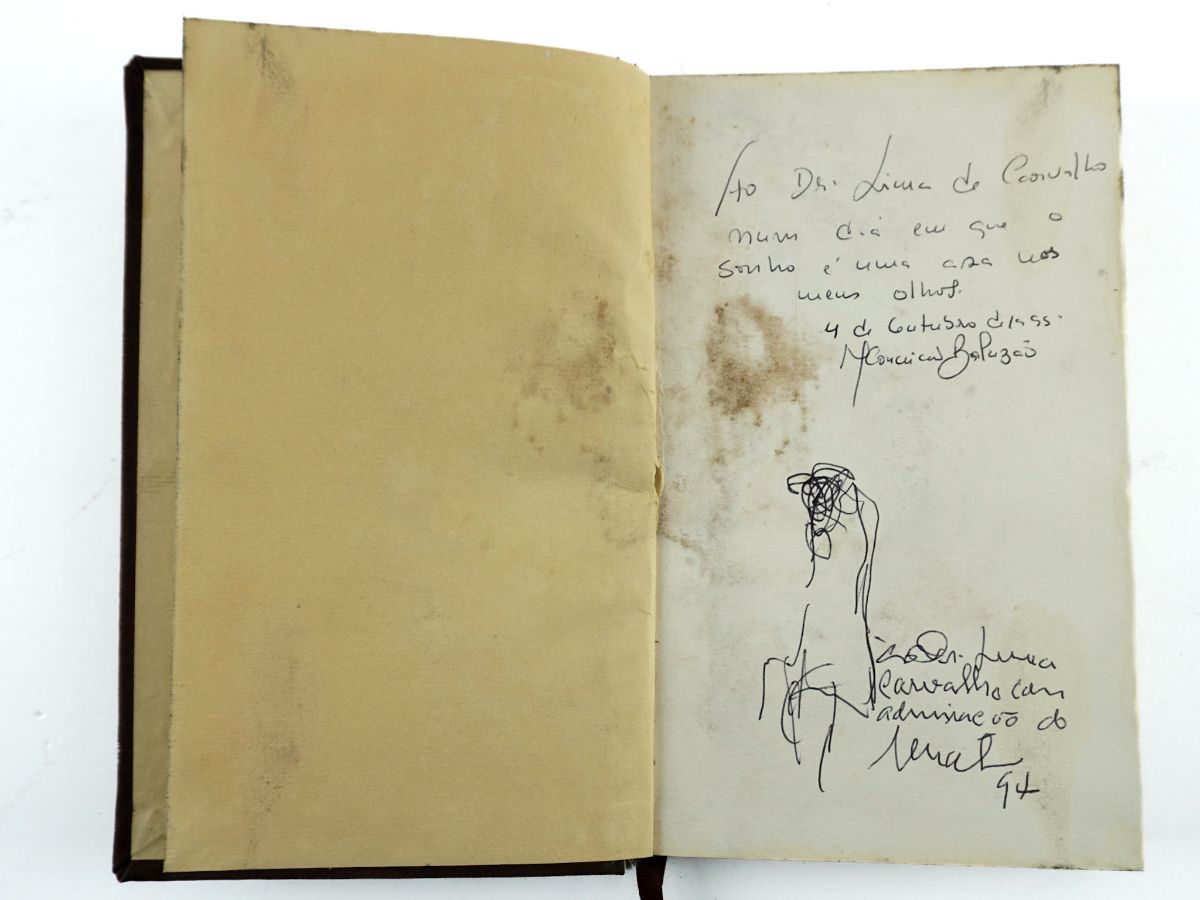 Ao Dr. Lima de Carvalho
num dia em que o
sonho é uma asa nos
meus olhos.
4 de Outubro de
ao Dr. Lima
Carvalho com
admiração do
94